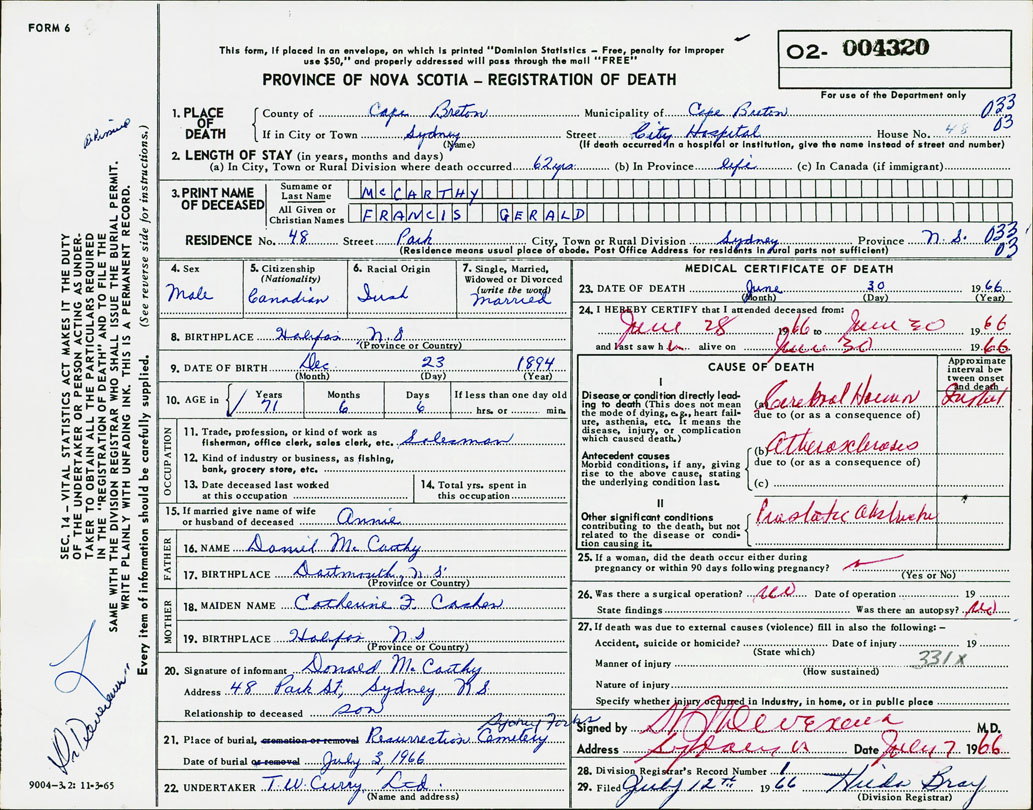 FORM 6
This form, if placed in an envelope, on which is printed "Dominion Statistics – Free, penalty for improper
use $50," and properly addressed will pass through the mail "FREE"
O2- 004320
For use of the Department only
PROVINCE OF NOVA SCOTIA – REGISTRATION OF DEATH
033
03
1. PLACE OF DEATH
County of Cape Breton Municipality of Cape Breton
If in City or Town Sydney Street City Hospital House No. 48
(Name) (If death occurred in a hospital or institution, give the name instead of street and number)
2. LENGTH OF STAY (in years, months and days)
(a) In City, Town or Rural Division where death occurred 62 yrs. (b) In Province life (c) In Canada (if immigrant)
3. PRINT NAME OF DECEASED
Surname or Last Name McCARTHY
All Given or Christian Names FRANCIS GERALD
RESIDENCE No. 48 Street Park City, Town or Rural Division Sydney Province N.S. 033
03
(Residence means usual place of abode. Post Office Address for residents in rural parts not sufficient)
4. Sex
Male
5. Citizenship
(Nationality)
Canadian
6. Racial Origin
Irish
7. Single, Married, Widowed or Divorced
(write the word)
Married
8. BIRTHPLACE Halifax N.S.
(Province or Country)
9. DATE OF BIRTH Dec 23 1894
(Month) (Day) (Year)
10. AGE in Years Months Days If less than one day old
71 6 6 hrs. or min.
OCCUPATION
11. Trade, profession, or kind of work as
fisherman, office clerk, sales clerk, etc. Salesman
12. Kind of industry or business, as fishing,
bank, grocery store, etc.
13. Date deceased last worked
at this occupation
14. Total yrs. spent in
this occupation
15. If married give name of wife
or husband of deceased Annie
FATHER
16. NAME Daniel McCarthy
17. BIRTHPLACE Dartmouth, N.S.
(Province or Country)
MOTHER
18. MAIDEN NAME Catherine F.
19. BIRTHPLACE Halifax N.S
(Province or Country)
20. Signature of informant Donald McCarthy
Address 48 Park St, Sydney NS
Relationship to deceased son
Sydney Forks
21. Place of burial, cremation or removal Resurrection Cemetery
Date of burial or removal July 3, 1966
22. UNDERTAKER T.W. Curry, Ltd.
(Name and address)
MEDICAL CERTIFICATE OF DEATH
23. DATE OF DEATH June 30 1966
(Month) (Day) (Year)
24. I HEREBY CERTIFY that I attended deceased from:
June 28 1966 to June 30 1966
and last saw h alive on June 30 1966
CAUSE OF DEATH
Approximate interval between onset and death
I
Disease or condition directly leading to death (This does not mean
the mode of dying, e.g., heart failure, asthenia, etc. It means the
disease, injury, or complication
which caused death.)
(a) Cerebral
due to (or as a consequence of)
Antecedent causes
Morbid conditions, if any, giving
rise to the above cause, stating
the underlying condition last.
(b) Atherosclerosis
due to (or as a consequence of)
(c)
II
Other significant conditions
contributing to the death, but not
related to the disease or condition causing it.
Prostatic
25. If a woman, did the death occur either during
pregnancy or within 90 days following pregnancy?
(Yes or No)
26. Was there a surgical operation? no Date of operation 19
State findings Was there an autopsy? no
27. If death was due to external causes (violence) fill in also the following: –
Accident, suicide or homicide? Date of injury 19
(State which)
Manner of injury 331X
(How sustained)
Nature of injury
Specify whether injury occurred in Industry, in home, or in public place
Signed by Devereux M.D.
Address Sydney Date July 7 1966
28. Division Registrar's Record Number
29. Filed July 12th 1966 Hilda Bray
(Division Registrar)
SEC. 14 – VITAL STATISTICS ACT MAKES IT THE DUTY
OF THE UNDERTAKER OR PERSON ACTING AS UNDER-
TAKER TO OBTAIN ALL THE PARTICULARS REQUIRED
IN THE "REGISTRATION OF DEATH" AND TO FILE THE
SAME WITH THE DIVISION REGISTRAR WHO SHALL ISSUE THE BURIAL PERMIT.
WRITE PLAINLY WITH UNFADING INK. THIS IS A PERMANENT RECORD.
Every item of information should be carefully supplied. (See reverse side for instructions.)
Dr Devereux
9004–3.2: 11-3-65